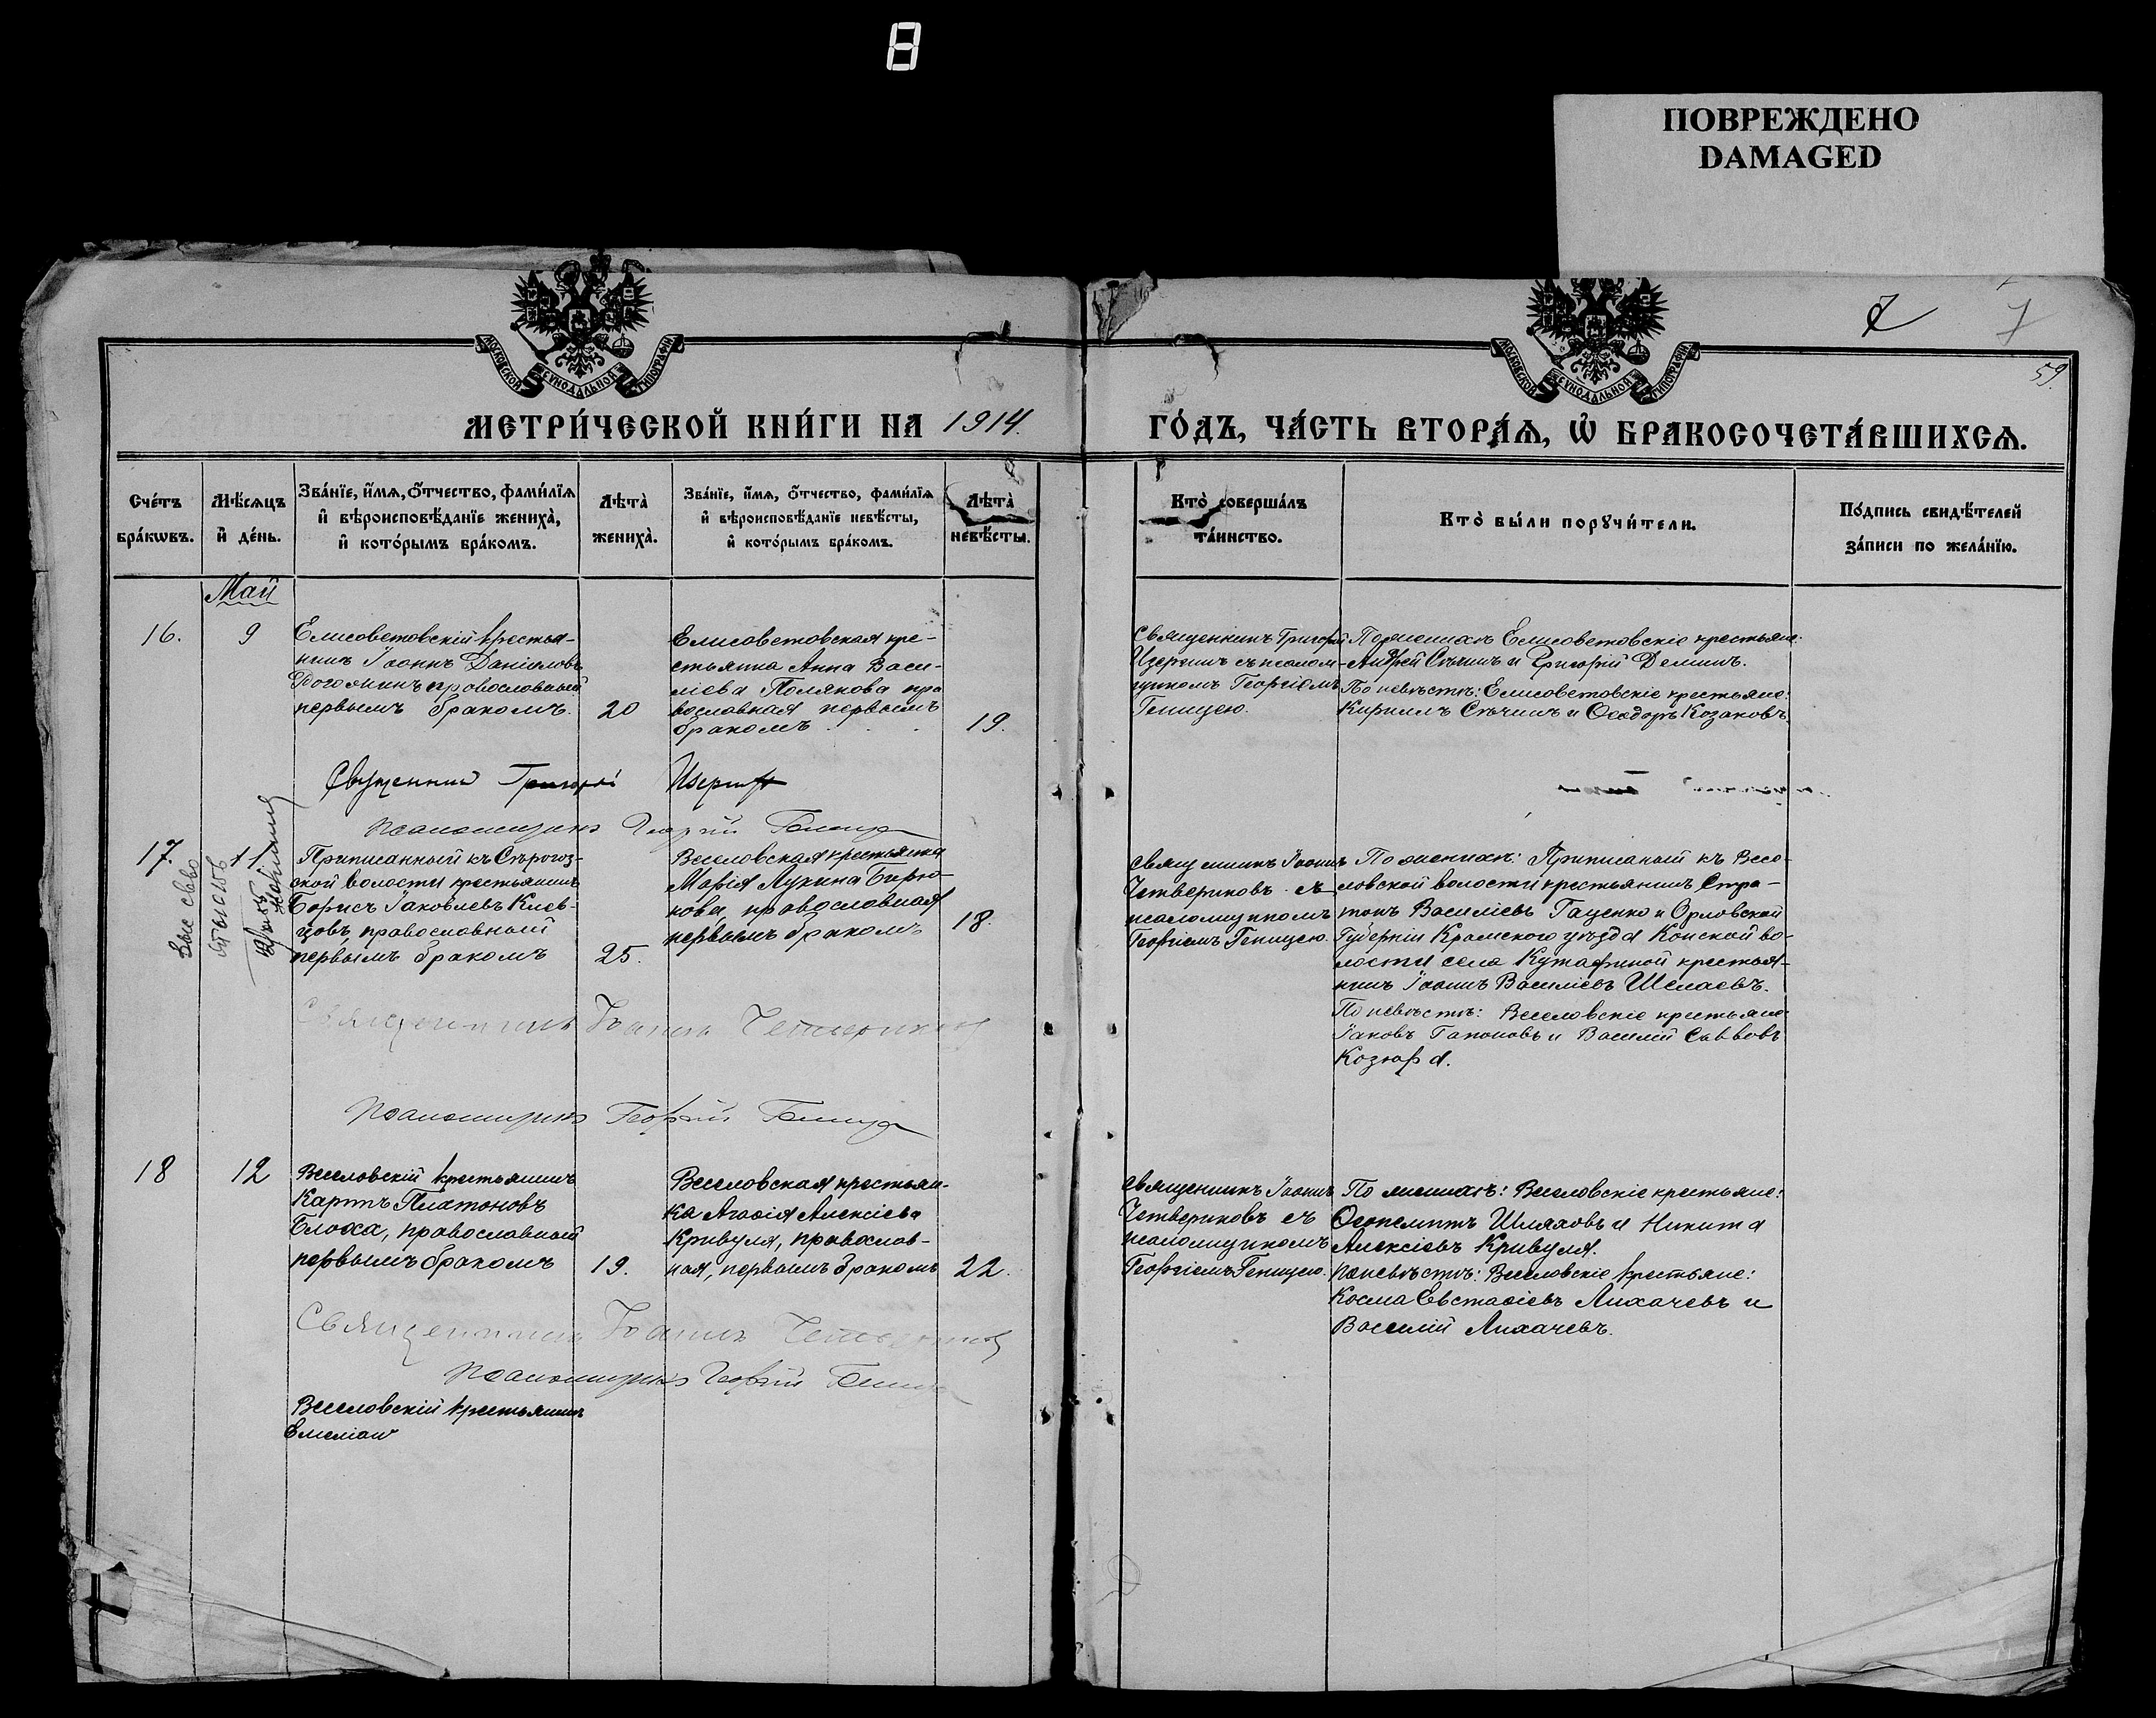 8
ПОВРЕЖДЕНО
DAMAGED
МОСКОВСКОЙ СѴНОДАЛЬНОЙ ТИПОГРАФІИ
МОСКОВСКОЙ СѴНОДАЛЬНОЙ ТИПОГРАФІИ
7
7
59
МЕТРИ́ЧЕСКОЙ КНИ́ГИ НА 1914.
ГО́ДЪ, ЧА́СТЬ ВТОРА́Я, Ѡ БРАКОСОЧЕТА́ВШИХСЯ.
Сче́тъ
бра́кѡвъ.
Мѣ́сяцъ
и҆ де́нь.
Зва́нїе, и҆́мя, ѻ҆́тчество, фами́лїя
и҆ вѣроисповѣ́данїе жениха̀,
и҆ кото́рымъ бра́комъ.
Лѣта̀
жениха̀.
Зва́нїе, и҆́мя, ѻ҆́тчество, фами́лїя
и҆ вѣроисповѣ́данїе невѣ́сты,
и҆ кото́рымъ бра́комъ.
Лѣта̀
невѣ́сты.
Кто̀ соверша́лъ
та́инство.
Кто̀ бы́ли порꙋчи́тели.
По́дпись свидѣ́телей
за́писи по жела́нїю.
Май
16.
9
Елисоветовскій крестья-
нинъ Іоаннъ Даніиловъ
православный
первымъ бракомъ.
20
Елисоветовская кре-
стьянка Анна Васи-
ліева Полякова пра
вославная первымъ
бракомъ . . .
19.
Священникъ Григорій
Изергинъ съ псалом-
щикомъ Георгіемъ
Геницею.
По женихѣ Елисоветовскіе крестьяне:
Андрей Сѣчинъ и Григорій Деминъ.
По невѣстѣ: Елисоветовскіе крестьяне:
Кириллъ Сѣчинъ и Ѳеодоръ Козаковъ.
Священникъ Григорій Изергинъ
Псаломщикъ Георгій Геница
17.
11
Приписанный къ Сѣрогоз-
ской волости крестьянинъ
Борисъ Іаковлевъ Клев-
цовъ, православный
первымъ бракомъ
25.
Веселовская крестьянка
Марія Лукина Бирю-
кова, православная
первымъ бракомъ
18.
священникъ Іоаннъ
Четвериковъ съ
псаломщикомъ
Георгіемъ Геницею.
По женихѣ: Приписаный къ Весе-
ловской волости крестьянинъ Стра-
тонъ Василіевъ Гаценко и Орловской
Губерніи Кромского уѣзда Конской во-
лости села крестья-
нинъ Іоаннъ Василіевъ Шелаевъ.
По невѣстѣ: Веселовскіе крестьяне
Іаковъ Гапоновъ и Василій Савовъ
Козюра.
Священникъ Іоаннъ Четвериковъ
Псаломщикъ Георгій Геница
18
12
Веселовскій крестьянинъ
Карпъ Платоновъ
Блоха, православный
первымъ бракомъ
19.
Веселовская крестьян-
ка Агафія Алексіева
Кривуля, православ-
ная, первымъ бракомъ
22.
священникъ Іоаннъ
Четвериковъ съ
псаломщикомъ
Георгіемъ Геницею.
По женихѣ: Веселовскіе крестьяне:
Ѳеопемптъ Шляховъ и Никита
Алексіевъ Кривуля.
По невѣстѣ: Веселовскіе крестьяне:
Косма Евстафіевъ Лихачевъ и
Василій Лихачевъ.
Священникъ Іоаннъ Четвериковъ
Псаломщикъ Георгій Геница
Веселовскій крестьянинъ
Емеліан